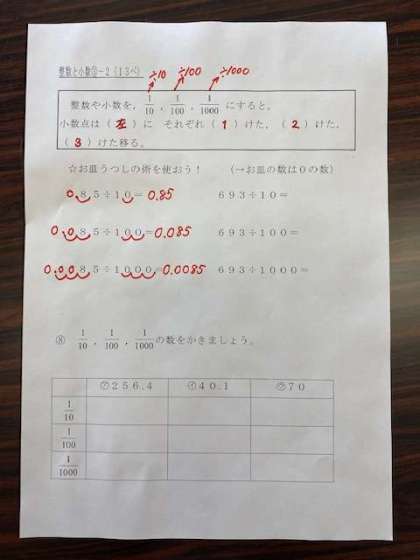 整数と小数②－2（13ページ）
÷10 ÷100 ÷1000
整数や小数を，1/10，1/100，1/1000にすると，
小数点は（左）に　それぞれ（1）けた，（2）けた，
（3）けた移る。
☆お皿うつしの術を使おう！　（→お皿の数は０の数）
0.85÷10＝0.85　693÷10＝
0.085÷100＝0.085　693÷100＝
0.0085÷1000＝0.0085　693÷1000＝
⑧　1/10，1/100，1/1000の数をかきましょう。
㋐256.4　㋑40.1　㋒70
1/10
1/100
1/1000